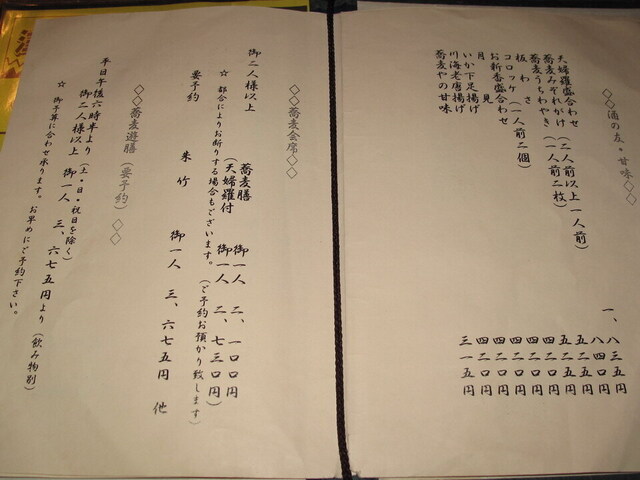 ◇◇酒の友・甘味◇◇
天婦羅盛合わせ(二人前以上一人前) 一、八三五円
蕎麦みぞれがけ 八四〇円
蕎麦うちわやき(一人前二枚) 五二五円
板わさ 五二五円
コロッケ(一人前二個) 四二〇円
お新香盛合わせ 四二〇円
月見 四二〇円
いか下足揚げ 四二〇円
川海老唐揚げ 四二〇円
蕎麦やの甘味 三一五円
◇◇蕎麦会席◇◇
御二人様以上 蕎麦膳 御一人 二、一〇〇円
(天婦羅付 御一人 二、七三〇円)
☆ 都合によりお断りする場合もございます。(ご予約お預かり致します)
要予約 朱竹 御一人 三、六七五円 他
◇◇蕎麦遊膳(要予約)◇◇
平日午後六時半より(土・日・祝日を除く)
御二人様以上 御一人 三、六七五円より(飲み物別)
☆ 御予算に合わせ承ります。お早めにご予約下さい。